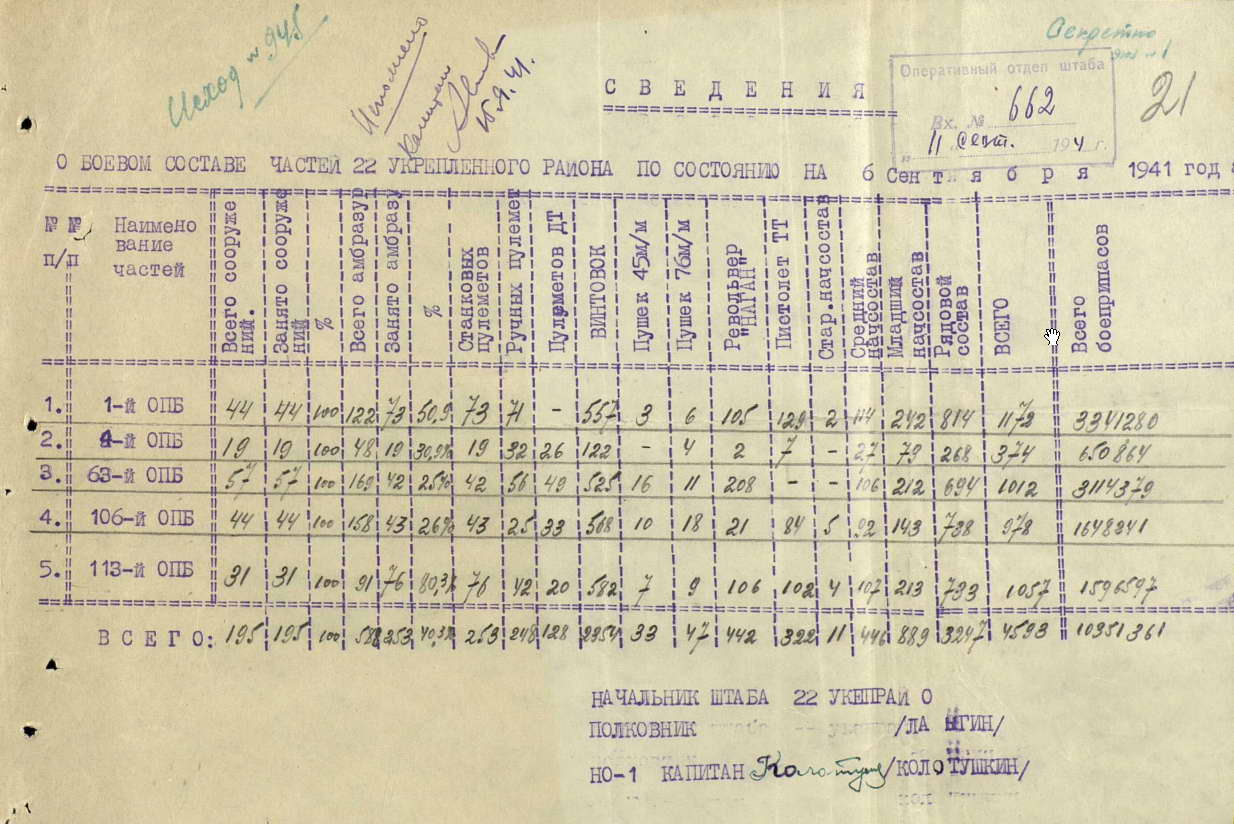 Исход № 945
Исполнено
Капитан
15.9.41.
Секретно
экз. № 1
Оперативный отдел штаба
Вх. № 662
"11" сент. 1941 г.
21
СВЕДЕНИЯ
О БОЕВОМ СОСТАВЕ ЧАСТЕЙ 22 УКРЕПЛЕННОГО РАЙОНА ПО СОСТОЯНИЮ НА 6 Сентября 1941 год
№ № п/п Наименование частей Всего сооружений. Занято сооружений % Всего амбразур Занято амбразу % Станковых пулеметов Ручных пулемет Пулеметов ДТ ВИНТОВОК Пушек 45м/м Пушек 76м/м Револьвер "НАГАН" Пистолет ТТ Стар.начсостав Средний начсостав Младший начсостав Рядовой состав ВСЕГО Всего боеприпасов
1. 1-й ОПБ 44 44 100 122 73 50,9 73 71 - 557 3 6 105 129 2 114 242 814 1172 3341280
2. 4-й ОПБ 19 19 100 48 19 30,9% 19 32 26 122 - 4 2 7 - 27 79 268 374 650864
3. 63-й ОПБ 57 57 100 169 42 25% 42 56 49 525 16 11 208 - - 106 212 694 1012 3114379
4. 106-й ОПБ 44 44 100 158 43 26% 43 25 33 568 10 18 21 84 5 92 143 738 978 1648241
5. 113-й ОПБ 31 31 100 91 76 80,3% 76 42 20 582 7 9 106 102 4 107 213 733 1057 1596597
ВСЕГО: 195 195 100 588 253 40,3% 253 248 128 2354 33 47 442 322 11 446 889 3247 4593 10351361
НАЧАЛЬНИК ШТАБА 22 УКЕПРАЙ О
ПОЛКОВНИК /ЛА ЫГИН/
НО-1 КАПИТАН Колотуш /КОЛОТУШКИН/